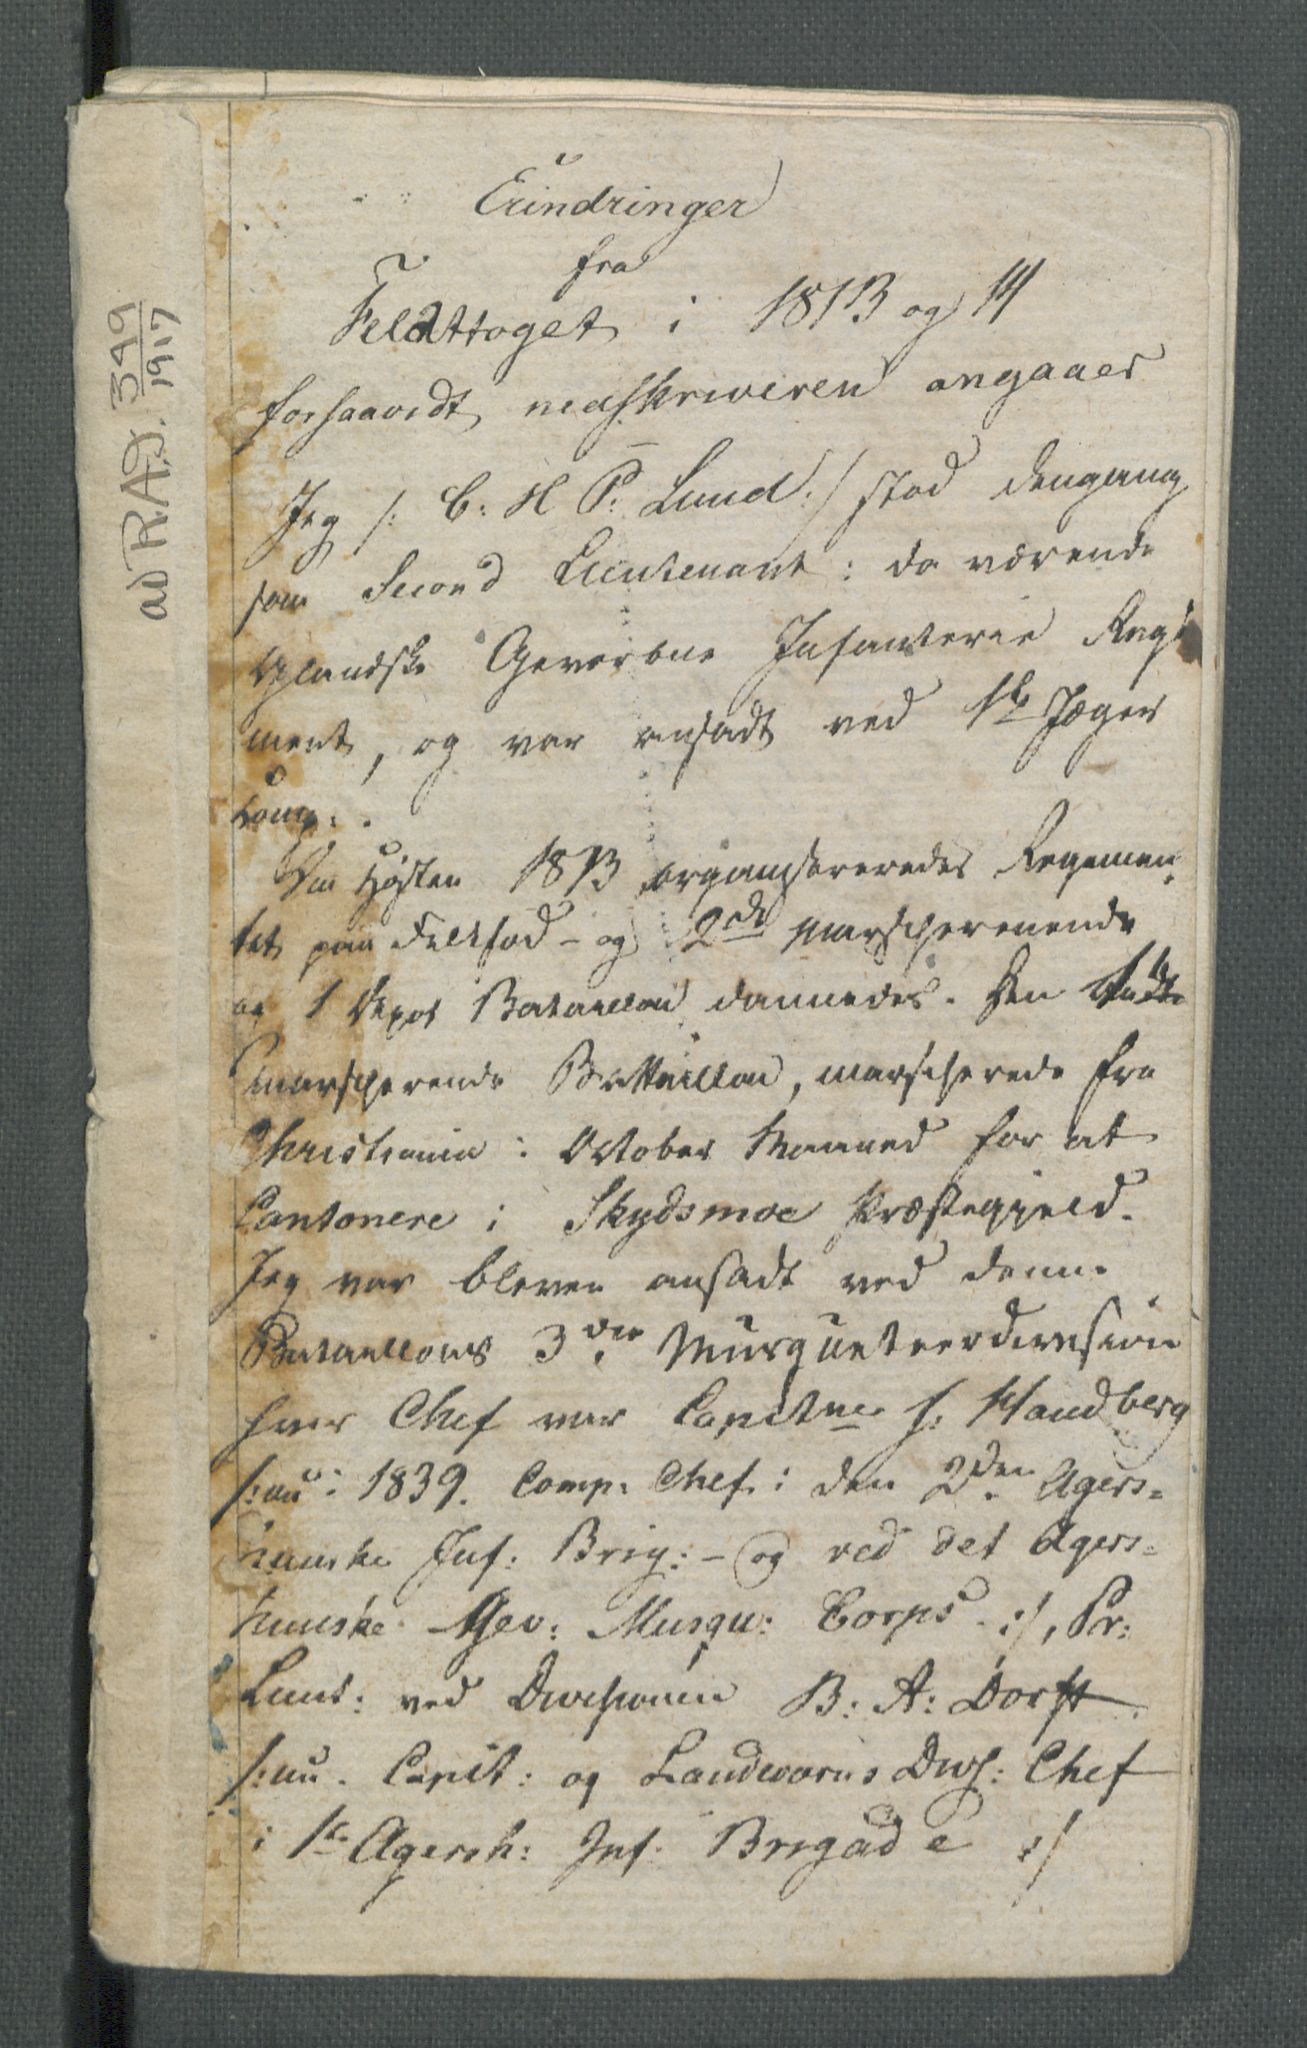 ad R.A.J. 399/1917
Erindringer
fra
Feldttoget i 1813 og 14
forsaavidt nedskriveren angaaer
Jeg /: C: H P: Lund :/ stod dengang
som Second Lieutenant i da værende
Oplandske Geworbne Infanterie Regi
ment, og var ansadt ved 1te Jæger
Comp: .
Om Høsten 1813 organiseredes Regemen
tet paa Feltfod - og 2de marscherende
og 1 Depot Bataillon dannedes. Den
marscherende Battaillon, marscherede fra
Christiania i October Maaned for at
Cantonere i Skydsmoe Præstegjeld.
Jeg var bleven ansadt ved denne
Bataillons 3die Musqueteerdivision
hvis Chef var Capitne H: Handberg
/: nu i 1839. Comp. Chef i den 2den Agers=
huuske Inf: Brig: - og ved det Agers=
huuske Gev: Musqu: Corps :/, Pr:
Lieut: ved Divisionen B: A: Dorff
/: nu Capit: og Landeværns Divs: Chef
i 1te Agersh: Inf: Brigade :/